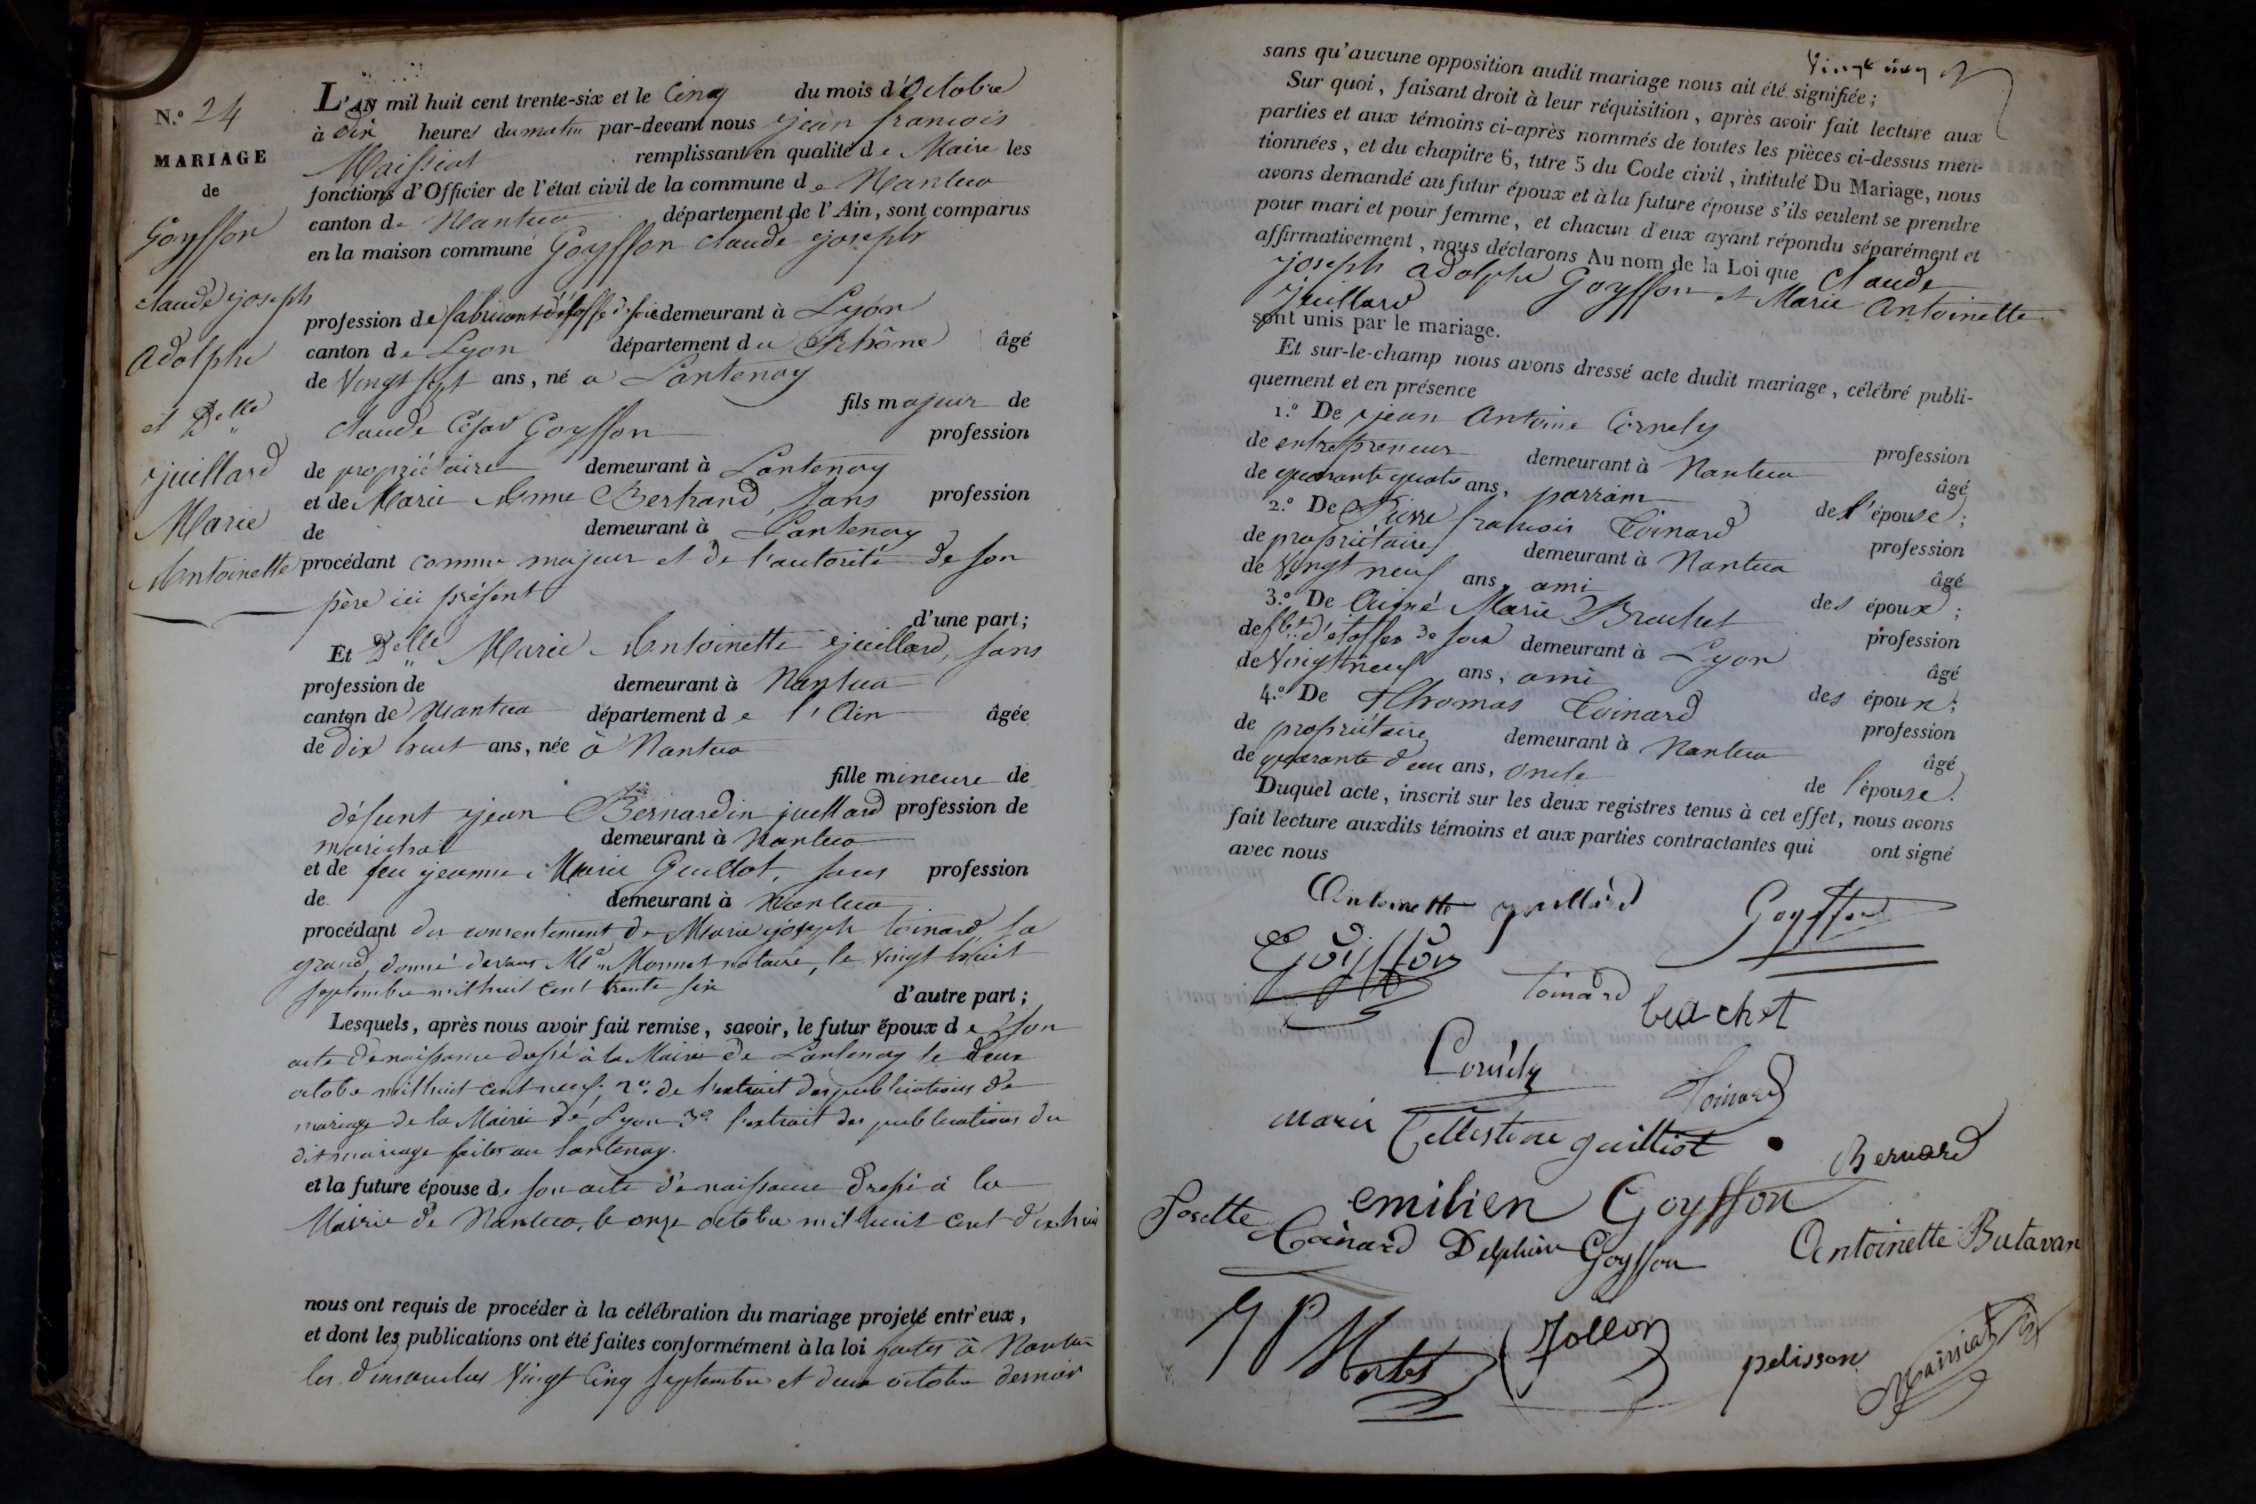 N.o 24
MARIAGE
de
Goyffon
claude joseph
adolphe
et Delle
juillard
Marie
Antoinette
L'AN mil huit cent trente-six et le Cinq du mois d'Octobre
à dix heures du matin par-devant nous jean françois
Maissiat remplissant en qualité de Maire les
fonctions d'Officier de l'état civil de la commune de Nantua
canton de Nantua département de l'Ain, sont comparus
en la maison commune Goyffon claude joseph
profession de fabricant d'étoffe de soie demeurant à Lyon
canton de Lyon département du Rhône âgé
de vingt sept ans, né a Lantenay
fils majeur de
claude César Goyffon profession
de propriétaire demeurant à Lantenay
et de Marie Aimé Bertrand, sans profession
de demeurant à Lantenay
procédant comme majeur et de l'autorité de son
père ici présent
d'une part;
Et Delle Marie Antoinette juillard, sans
profession de demeurant à Nantua
canton de Nantua département de l'Ain âgée
de dix huit ans, née à Nantua
fille mineure de
défunt jean Bernardin juillard profession de
maréchal demeurant à Nantua
et de feu jeanne Marie Guillot, sans profession
de demeurant à Nantua
procédant du consentement de Marie joseph toinard sa
grand, donné devant Me Monnet notaire, le vingt huit
septembre mil huit cent trente six
d'autre part;
Lesquels, après nous avoir fait remise, savoir, le futur époux de son
acte de naissance dressé à la Mairie de Lantenay le deux
octobre mil huit cent neuf, 2o. de l'extrait des publications de
mariage de la Mairie de Lyon 3o l'extrait des publications du
dit mariage faites au Lantenay.
et la future épouse de son acte de naissance dressé à la
Mairie de Nantua, le onze octobre mil huit cent dix huit
nous ont requis de procéder à la célébration du mariage projeté entr'eux,
et dont les publications ont été faites conformément à la loi faites à Nantua
les dimanches vingt cinq septembre et deux octobre dernier
sans qu'aucune opposition audit mariage nous ait été signifiée;
Sur quoi, faisant droit à leur réquisition, après avoir fait lecture aux
parties et aux témoins ci-après nommés de toutes les pièces ci-dessus men-
tionnées, et du chapitre 6, titre 5 du Code civil, intitulé Du Mariage, nous
avons demandé au futur époux et à la future épouse s'ils veulent se prendre
pour mari et pour femme, et chacun d'eux ayant répondu séparément et
affirmativement, nous déclarons Au nom de la Loi que Claude
joseph adolphe Goyffon et Marie Antoinette
juillard
sont unis par le mariage.
Et sur-le-champ nous avons dressé acte dudit mariage, célébré publi-
quement et en présence
1.o De jean Antoine Cornely profession
de entrepreneur demeurant à Nantua âgé
de quarante quatre ans, parrain de l'épouse;
2.o De Pierre françois Toinard profession
de propriétaire demeurant à Nantua âgé
de vingt neuf ans, ami des époux;
3.o De Aimé Marie Brachet profession
de fbt. d'étoffes de soie demeurant à Lyon âgé
de vingt neuf ans, ami des époux;
4.o De Thomas Toinard profession
de propriétaire demeurant à Nantua âgé
de quarante deux ans, oncle de l'épouse.
Duquel acte, inscrit sur les deux registres tenus à cet effet, nous avons
fait lecture auxdits témoins et aux parties contractantes qui ont signé
avec nous
Antoinette juillard Goyffon
Goÿffon toinard brachet
Cornély Toinard
marie Cellestine guilliot Bernard
emilien Goyffon
Josette Toinard Delphine Goyffon Antoinette Butavan
pelisson Maissiat